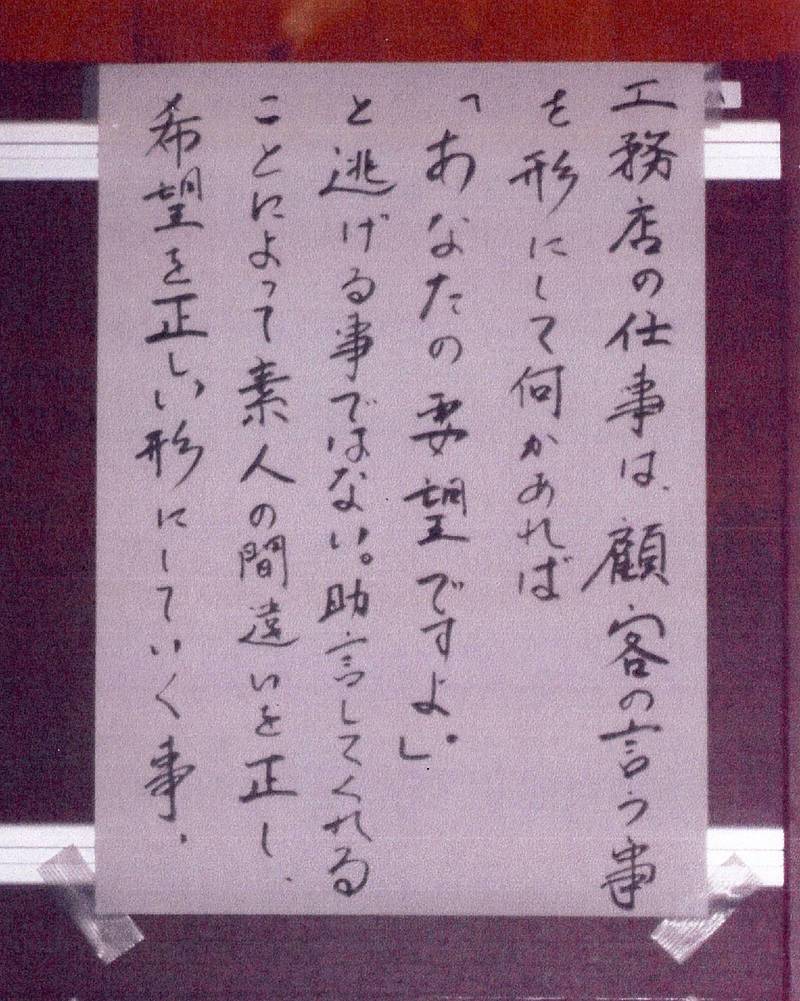 工務店の仕事は、顧客の言う事
を形にして何かあれば
「あなたの要望ですよ。」
と逃げる事ではない。助言してくれる
ことによって素人の間違いを正し、
希望を正しい形にしていく事。